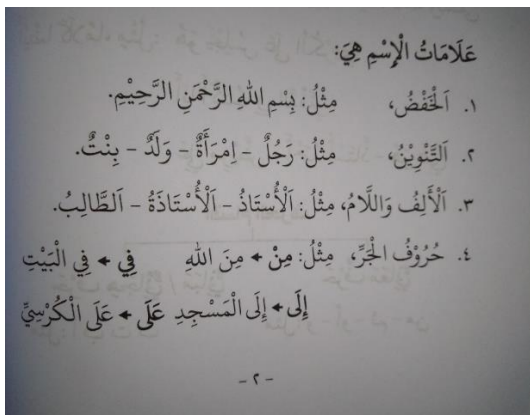 عَلَامَاتُ الْإِسْمِ هِيَ:
١. اَلْخَفْضُ، مِثْلُ: بِسْمِ اللهِ الرَّحْمَنِ الرَّحِيْمِ.
٢. اَلتَّنْوِيْنُ، مِثْلُ: رَجُلٌ – اِمْرَأَةٌ – وَلَدٌ – بِنْتٌ.
٣. اَلْأَلِفُ وَاللَّامُ، مِثْلُ: اَلْأُسْتَاذُ – اَلْأُسْتَاذَةُ – اَلطَّالِبُ.
٤. حُرُوْفُ الْجَرِّ، مِثْلُ: مِنْ ← مِنَ اللهِ فِي ← فِي الْبَيْتِ
إِلَى ← إِلَى الْمَسْجِدِ عَلَى ← عَلَى الْكُرْسِيِّ
– ٢ –